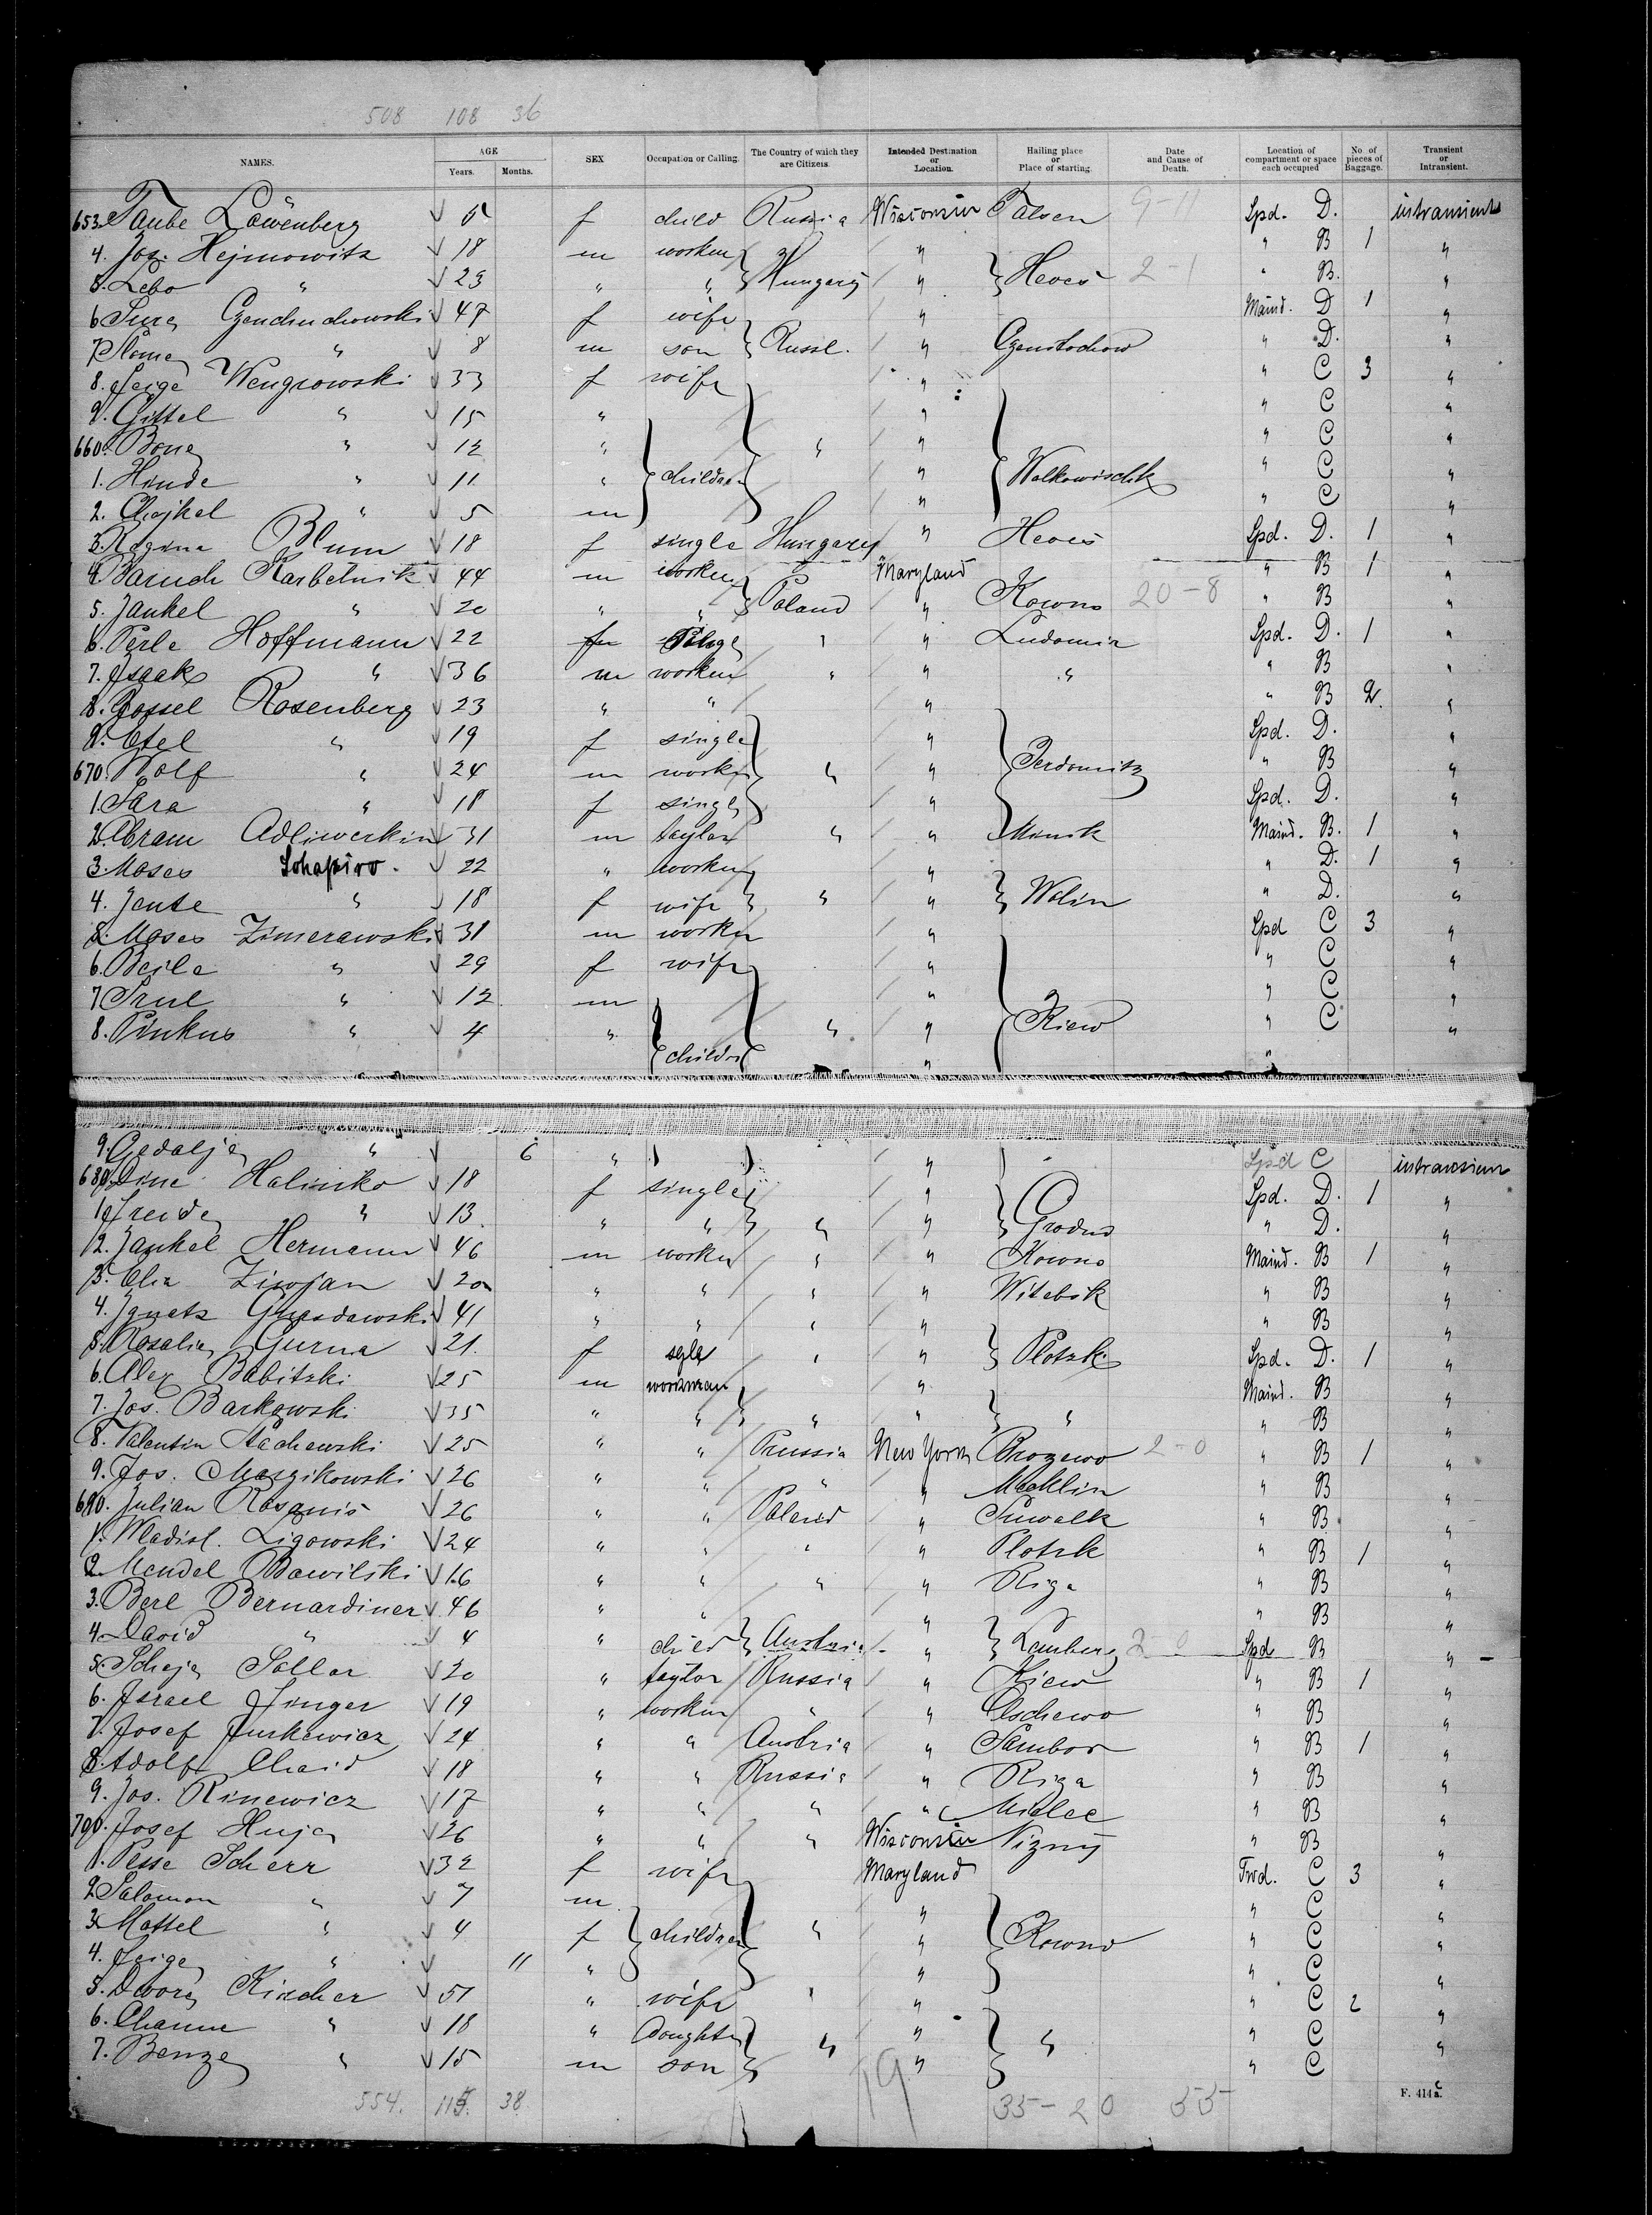 508 108 36
NAMES. AGE Years. Months. SEX Occupation or Calling. The Country of which they are Citizens. Intended Destination or Location. Hailing place or Place of starting. Date and Cause of Death. Location of compartment or space each occupied No. of pieces of Baggage. Transient or Intransient.
653. Taube Löwenberg 5 f child Russia Wisconsin Talsen 9-11 Spd. D. intransient
4. Jos. Hejmowitz 18 m worker " B 1 "
5. Lebo " 23 " " Hungary " Heves 2-1 " B. "
6 Sura 47 f wife " Maind. D 1 "
7. " 8 m son Russl. " Czenstochow " D. "
8. Feige Wengrowski 33 f wife " " C 3 "
9. Gittel " 15 " " " C "
660. " 12 " " " " C "
1. Hinde " 11 " children " Wolkowischk " C "
2. Chajkel " 5 m " " C "
3. Regina Blum 18 f single Hungary " Heves Spd. D. 1 "
4. Baruch Karbelnik 44 m worker Maryland " B 1 "
5. Jankel " 20 " " Poland " Kowno 20-8 " B "
6. Perle Hoffmann 22 f " " Ludomir Spd. D. 1 "
7. Isaak " 36 m worker " " " " B "
8. Gossel Rosenberg 23 " " " " B 2. "
9. Etel " 19 f single " Spd. D. "
670. Wolf " 24 m worker " " " B "
1. Sara " 18 f single " Spd. D. "
2. Abram Adliwerkin 31 m taylor " " Minsk Maind. B. 1 "
3. Moses Schapiro. 22 " worker " " D. 1 "
4. Jente " 18 f wife " " Wolin " D. "
5. Moses Zimerawski 31 m worker " Spd C 3 "
6. Beile " 29 f wife " " C "
7 Srul " 12 m " " C "
8. Pinkus " 4 " " " Kiew " C "
children " "
9. Gedalje " 6 " " Spd C intransient
680. Dine Halinko 18 f single " Spd. D. 1 "
1. Freide " 13. " " " " Grodno " D. "
2. Jankel Hermann 46 m worker " " Kowno Maind. B 1 "
3. 20 " " " " Witebsk " B "
4. Ignatz 41 " " " " " B "
5. Rosalie Gurna 21. f sgle " " Plotzk Spd. D. 1 "
6. Alex Babitzki 25 m workman " Maind. B "
7. Jos. Barkowski 35 " " " " " " B "
8. Valentin Stachewski 25 " " Prussia New York 2-0 " B 1 "
9. Jos. 26 " " " " " B "
690. Julian 26 " " Poland " Suwalk " B "
1. Wladisl. Ligowski 24 " " " " Plotzk " B 1 "
2. Mendel Bawilski 16 " " " " Riga " B "
3. Berl Bernardiner 46 " " " " B "
4. David " 4 " child Austria " Lemberg 2-0 Spd B "
5. Scheje Saller 20 " taylor Russia " Kiew " B 1 "
6. Israel Singer 19 " worker " " " B "
7. Josef Jurkewicz 24 " " Austria " Sambor " B 1 "
8. Adolf 18 " " Russia " Riga " B "
9. Jos. Rinewicz 17 " " " " Mielec " B "
700. Josef 26 " " " Wisconsin " B "
1. Pesse Scherr 32 f wife Maryland Fwd. C 3 "
2 Salomon " 7 m " " C "
3. Mottel " 4 f children " " Kowno " C "
4. Feige " 11 " " " C "
5. Dwore Kircher 51 " wife " " " C 2 "
6. Channe " 18 " doughter " " " " C "
7. " 15 m son " " C
554. 115. 38 19 35-20 55
F. 414a.